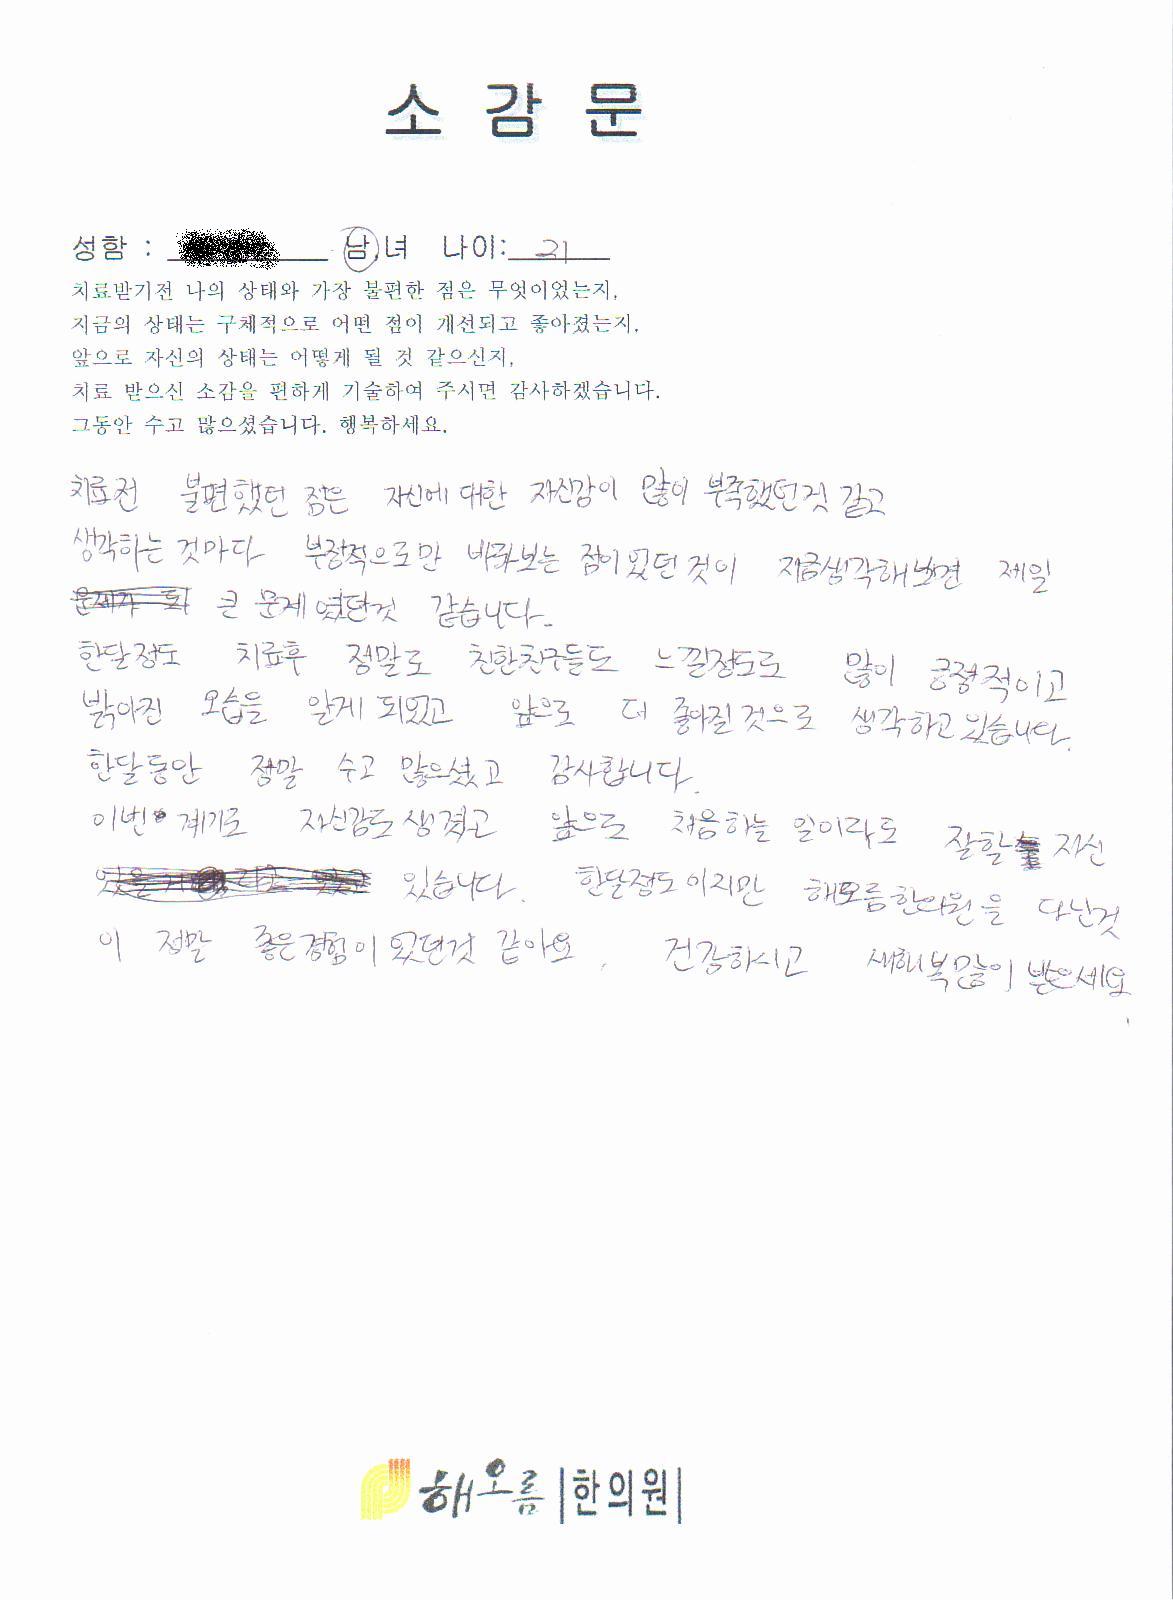 소 감 문
성함 : 남,녀 나이: 21
치료받기전 나의 상태와 가장 불편한 점은 무엇이었는지,
지금의 상태는 구체적으로 어떤 점이 개선되고 좋아졌는지,
앞으로 자신의 상태는 어떻게 될 것 같으신지,
치료 받으신 소감을 편하게 기술하여 주시면 감사하겠습니다.
그동안 수고 많으셨습니다. 행복하세요.
치료전 불편했던 점은 자신에 대한 자신감이 많이 부족했던것 같고
생각하는 것마다 부정적으로만 바라보는 점이 있던 것이 지금생각해보면 제일
큰 문제 였던것 같습니다.
한달정도 치료후 정말로 친한친구들도 느낄정도로 많이 긍정적이고
밝아진 모습을 알게 되었고 앞으로 더 좋아질 것으로 생각하고 있습니다.
한달동안 정말 수고 많으셨고 감사합니다.
이번 계기로 자신감도 생겼고 앞으로 처음하는 일이라도 잘할 자신
있습니다. 한달정도 이지만 해오름한의원을 다닌것
이 정말 좋은경험이 었던것 같아요. 건강하시고 새해 복많이 받으세요
해오름 한의원